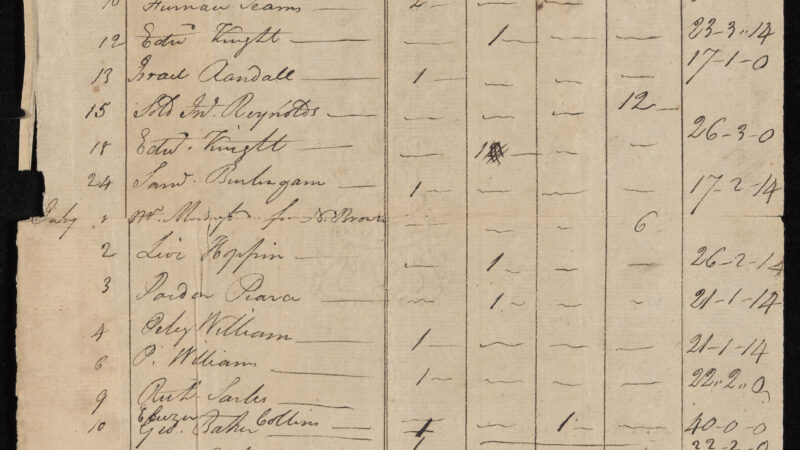 10 Furnau Seams — 2 — — —
12 Edwd. Knight — — 1 — — — 23-3-14
13 Israel Randall — 1 — — — — 17-1-0
15 Sold Jno. Reynolds — — — — 12 —
18 Edwd. Knight — — 1 — — — 26-3-0
24 Saml. Burlingam — 1 — — — — 17-2-14
July 1 Mr. for N. Brown — — — 6 —
2 Livi Hoppin — — 1 — — — 26-2-14
3 Pardon Pearce — — 1 — — — 21-1-14
4 Peleg William — 1 — — — — 21-1-14
6 P. Williams — 1 — — — — 22-2-0
9 Sarles — — — — —
10 Ebenzer Collins
Geo. Baker — 1 — 1 — — 40-0-0
1 22-2-0